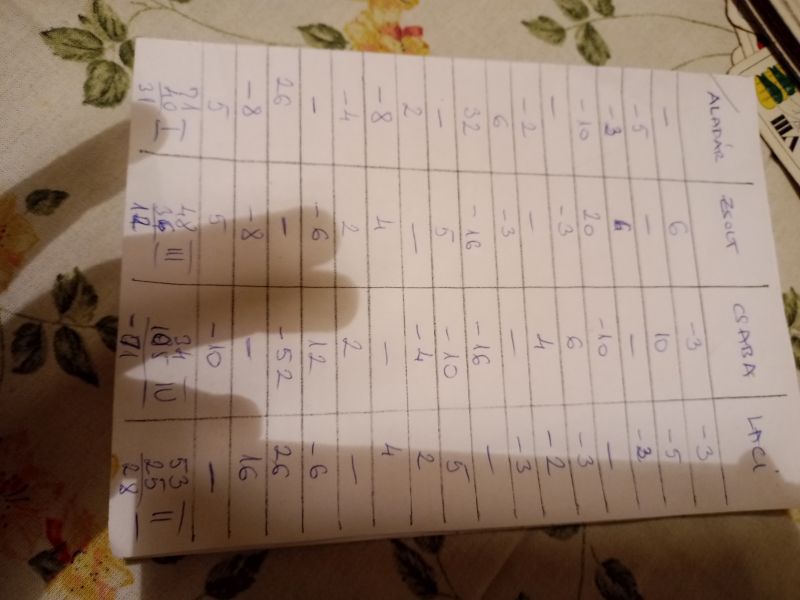 ALADÁR ZSOLT CSABA LACI
— 6 -3 -3
-5 — 10 -5
-3 6 — -3
-10 20 -10 —
— -3 6 -3
-2 — 4 -2
6 -3 — -3
32 -16 -16 —
— 5 -10 5
2 — -4 2
-8 4 — 4
-4 2 2 —
— -6 12 -6
26 — -52 26
-8 -8 — 16
5 5 -10 —
71 48 34 53
40 I 36 III 105 IV 25 II
31 12 -71 28
VII